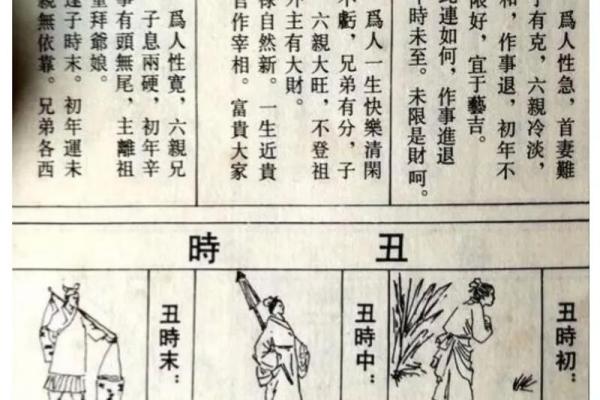 爲人性急，首妻難
子有克，六親冷淡，
和，作事退，初年不
限好，宜于藝吉。
連如何，作事進退
時未至。未限是財呵。
爲人一生快樂清閑
不虧，兄弟有分，子
六親大旺，不登祖
外主有大財。
祿自然新。一生近貴
官作宰相。富貴大家
爲人性寬，六親兄
子息兩硬，初年辛
事有頭無尾，主離祖
重拜爺娘。
逢子時末。初年運未
親無依靠。兄弟各西
丑時
丑時初：
丑時中：
丑時末：